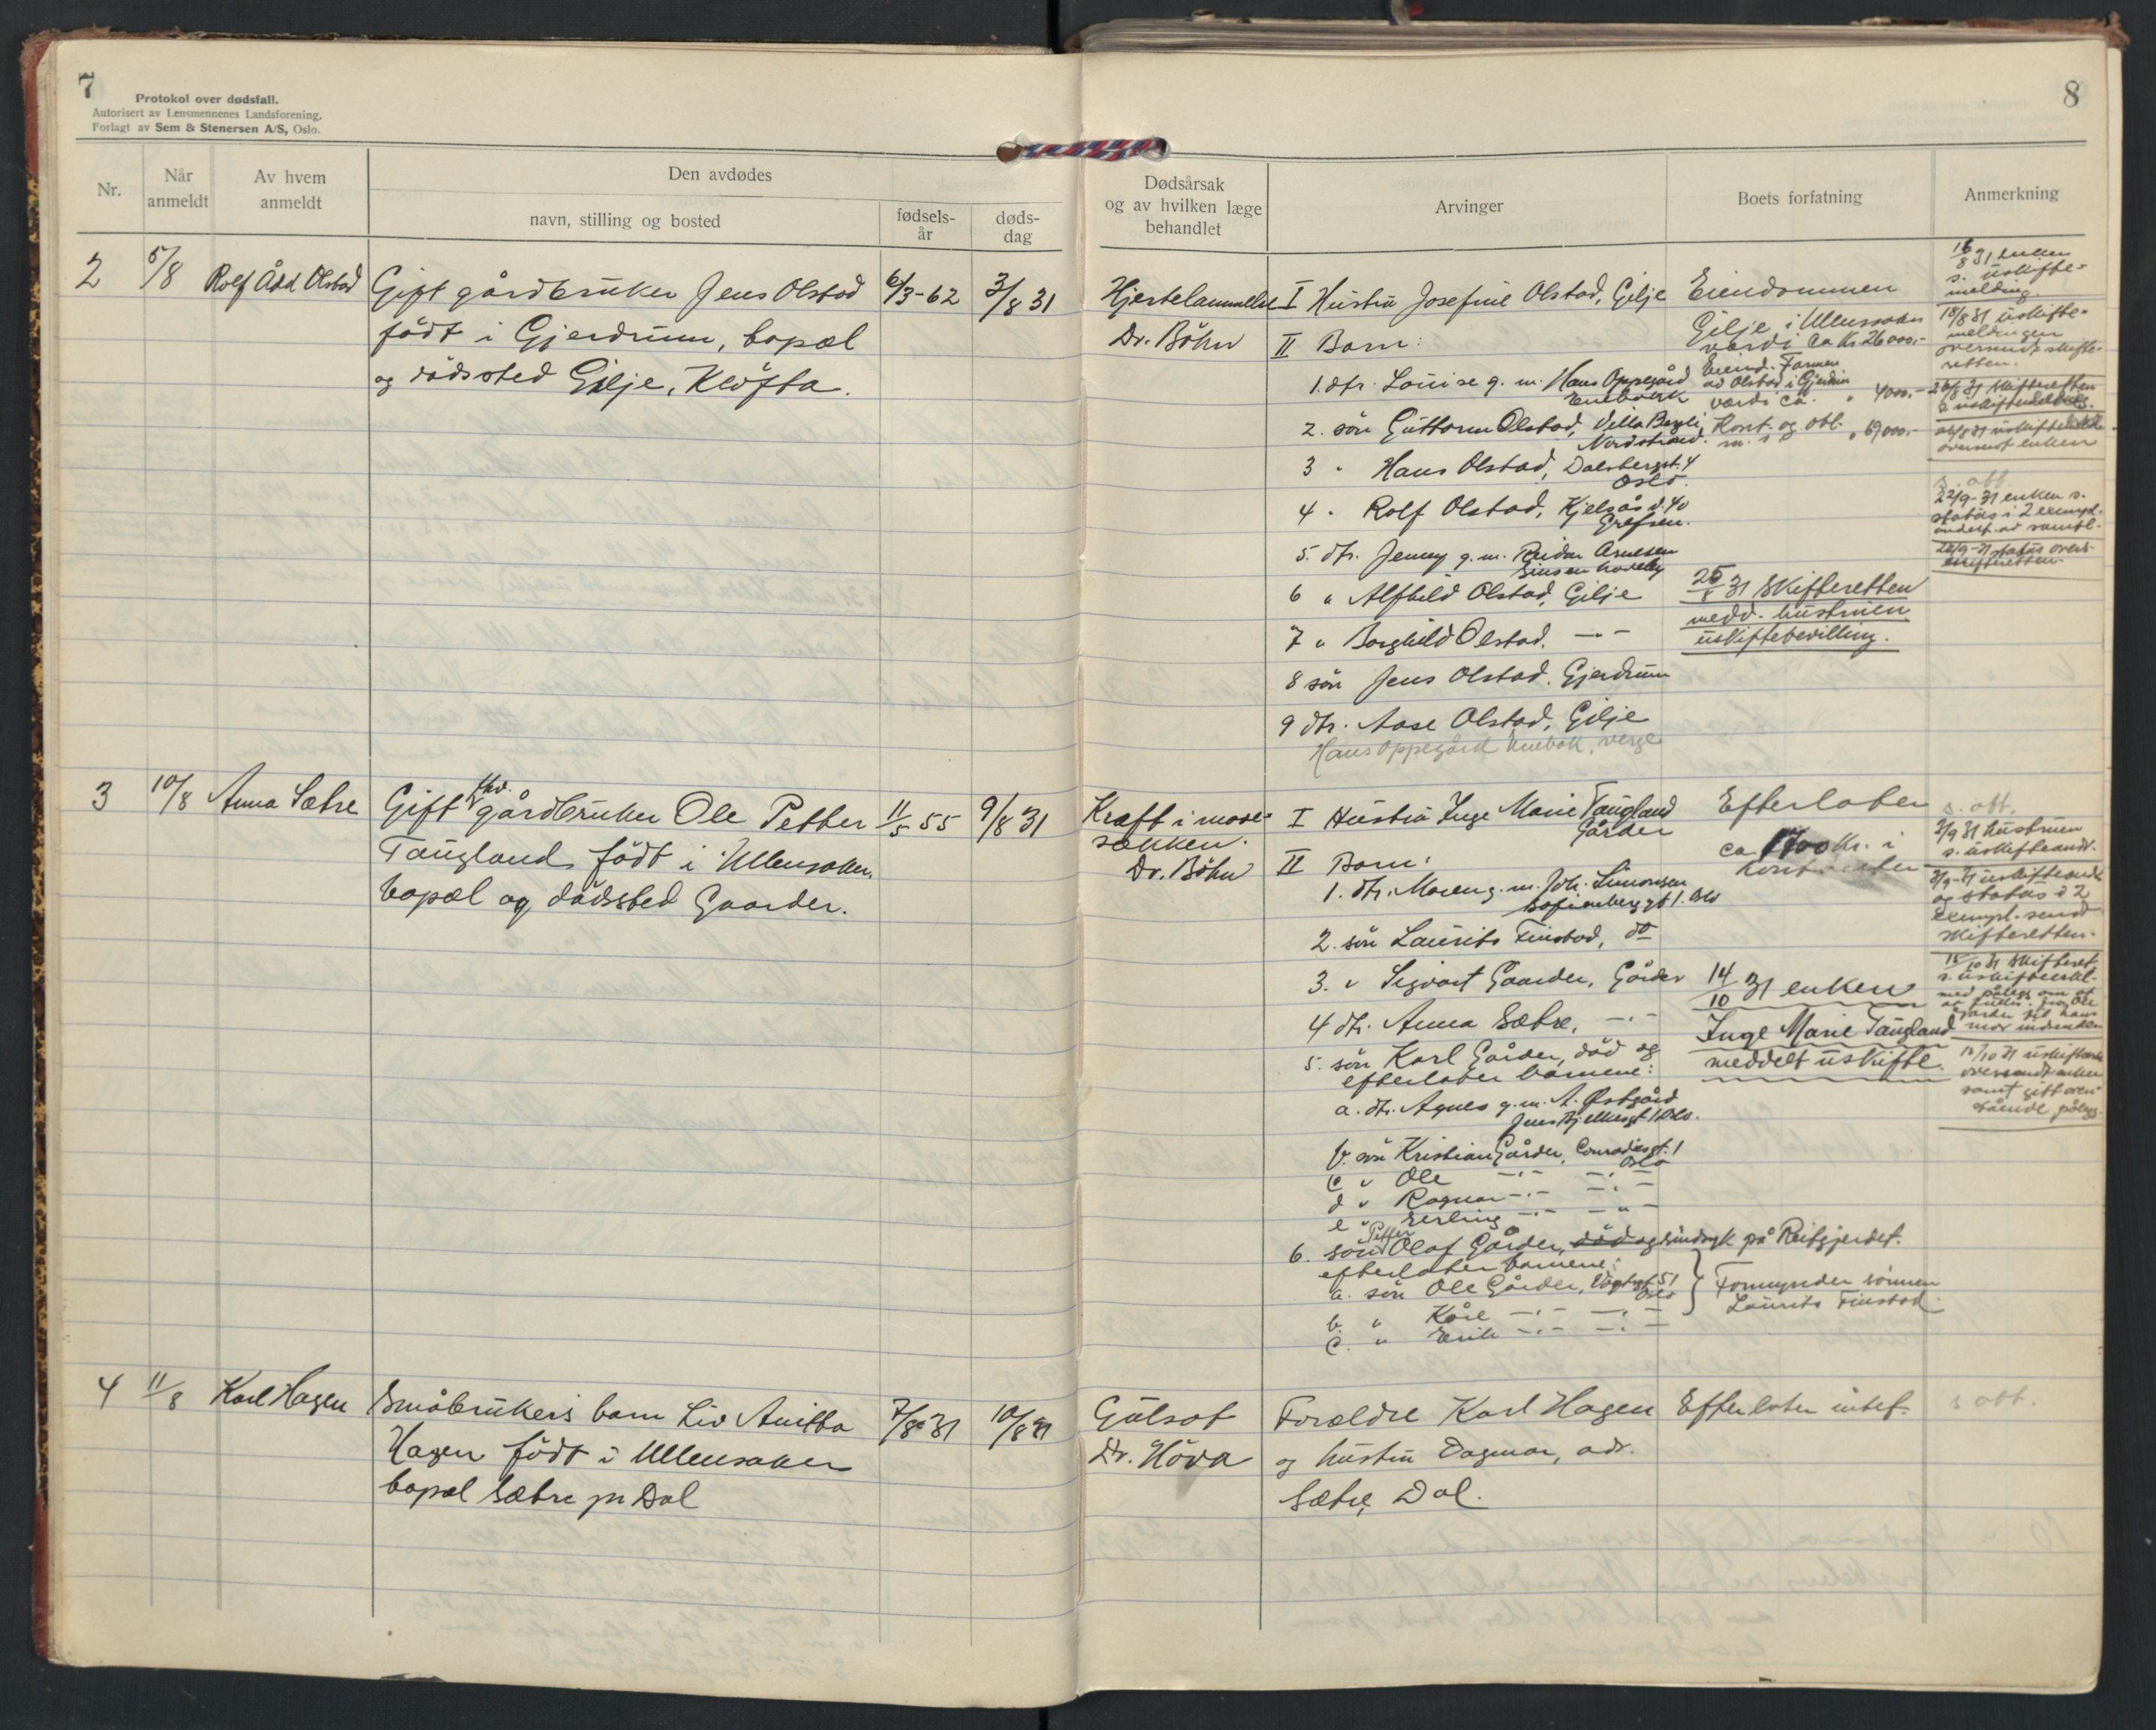 7
Protokol over dødsfall.
Autorisert av Lensmennenes Landsforening.
Forlagt av Sem & Stenersen A/S, Oslo.
8
Nr.
Når anmeldt
Av hvem anmeldt
Den avdødes
navn, stilling og bosted
fødsels-år
døds-dag
Dødsårsak og av hvilken læge behandlet
Arvinger
Boets forfatning
Anmerkning
2
5/8
Rolf Olstad
Gift gårdbruker Jens Olstad
født i Gjerdrum, bopæl
og dødssted Gilje, Kløfta.
6/3-62
3/8 31
Hjertelammelse
Dr. Böhn
I Hustru Josefine Olstad, Gilje
II Barn:
1. dtr. Louise g. m. Hans Oppegård
Enebakk
2. søn Guttorm Olstad, Villa Bergli,
Nordstrand.
3 " Hans Olstad, Dalsbergst. 4
Oslo.
4 " Rolf Olstad, Kjelsåsv. 40
Grefsen.
5. dtr. Jenny g. m. Reidar Arnesen
Sinsen haveby
6 " Alfhild Olstad, Gilje
7 " Borghild Olstad. -"-
8 søn Jens Olstad. Gjerdrum
9 dtr. Aase Olstad, Gilje
Hans Oppegård Enebak, verge
Eiendommen
Gilje i Ullensaker
værdi ca Kr. 26000.-
Eiend. Furmen
av Olstad i Gjerdrum
værdi ca. " 4000.-
Kont. og obl. " 69000.-
m. s
25/8 31 Skifteretten
medd. hustruen
uskiftebevilling.
18/8 31 enken
s. uskifte-
melding.
18/8 31 uskifte-
meldingen
oversendt skifte-
retten.
26/8 31 skifteretten
s. uskiftemeldg.
26/8 31
oversendt enken
s. att.
22/9-31 enken s.
status i 2 eksempl.
underf. av samtl.
22/9-31 status overs.
skifteretten.
3
10/8
Anna Sætre
Gift fhv. gårdbruker Ole Petter
Taugland født i Ullensaker.
bopæl og dødssted Gaarder.
11/5 55
9/8 31
Kræft i mave-
sækken.
Dr. Böhn
I Hustru Inge Marie Taugland
Gårder
II Barn:
1. dtr. Maren g. m. Joh. Simonsen
Sofienberggt 1. Oslo
2. søn Laurits Finstad, do
3. " Sigvart Gaarder, Gårder
4 dtr. Anna Sætre, -"-
5. søn Karl Gårder, død og
efterlater barnene:
a. dtr. Agnes g. m. A. Østgård
Jens Bjelkesgt. 1 Oslo.
b. søn Kristian Gårder, Conradisgt. 1
Oslo
c " Ole -"- -"-
d " Ragnar -"- -"-
e " Erling -"- -"-
6. søn Petter Olaf Gårder, død og sindsyk på Reitgjerdet.
efterlater barnene:
a. søn Ole Gårder, Vogtsgt. 51
Oslo
b. " Kåre -"- -"-
c. " Erik -"- -"-
Formynder sønnen
Laurits Finstad.
Efterlater
ca 1700 Kr. i
kontanter
14/10 31 enken
Inge Marie Taugland
meddelt uskifte.
s. att.
2/9 31 hustruen
s. uskifteandr.
2/9-31 uskifteandr.
og status i 2
eksempl. sendt
skifteretten.
15/10 31 skifteret.
s. uskifteerkl.
med pålegg om at
mor
15/10 31 uskifteerkl.
oversendt enken
samt gitt oven-
stående pålegg.
4
11/8
Karl Hagen
Småbrukers barn Liv Anitta
Hagen født i Ullensaker
bopæl Sætre pr Dal
7/8-31
10/8 31
Gulsot
Dr. Höva
Forældre Karl Hagen
og hustru Dagmar, adr.
Sætre, Dal.
Efterlater intet.
s att.